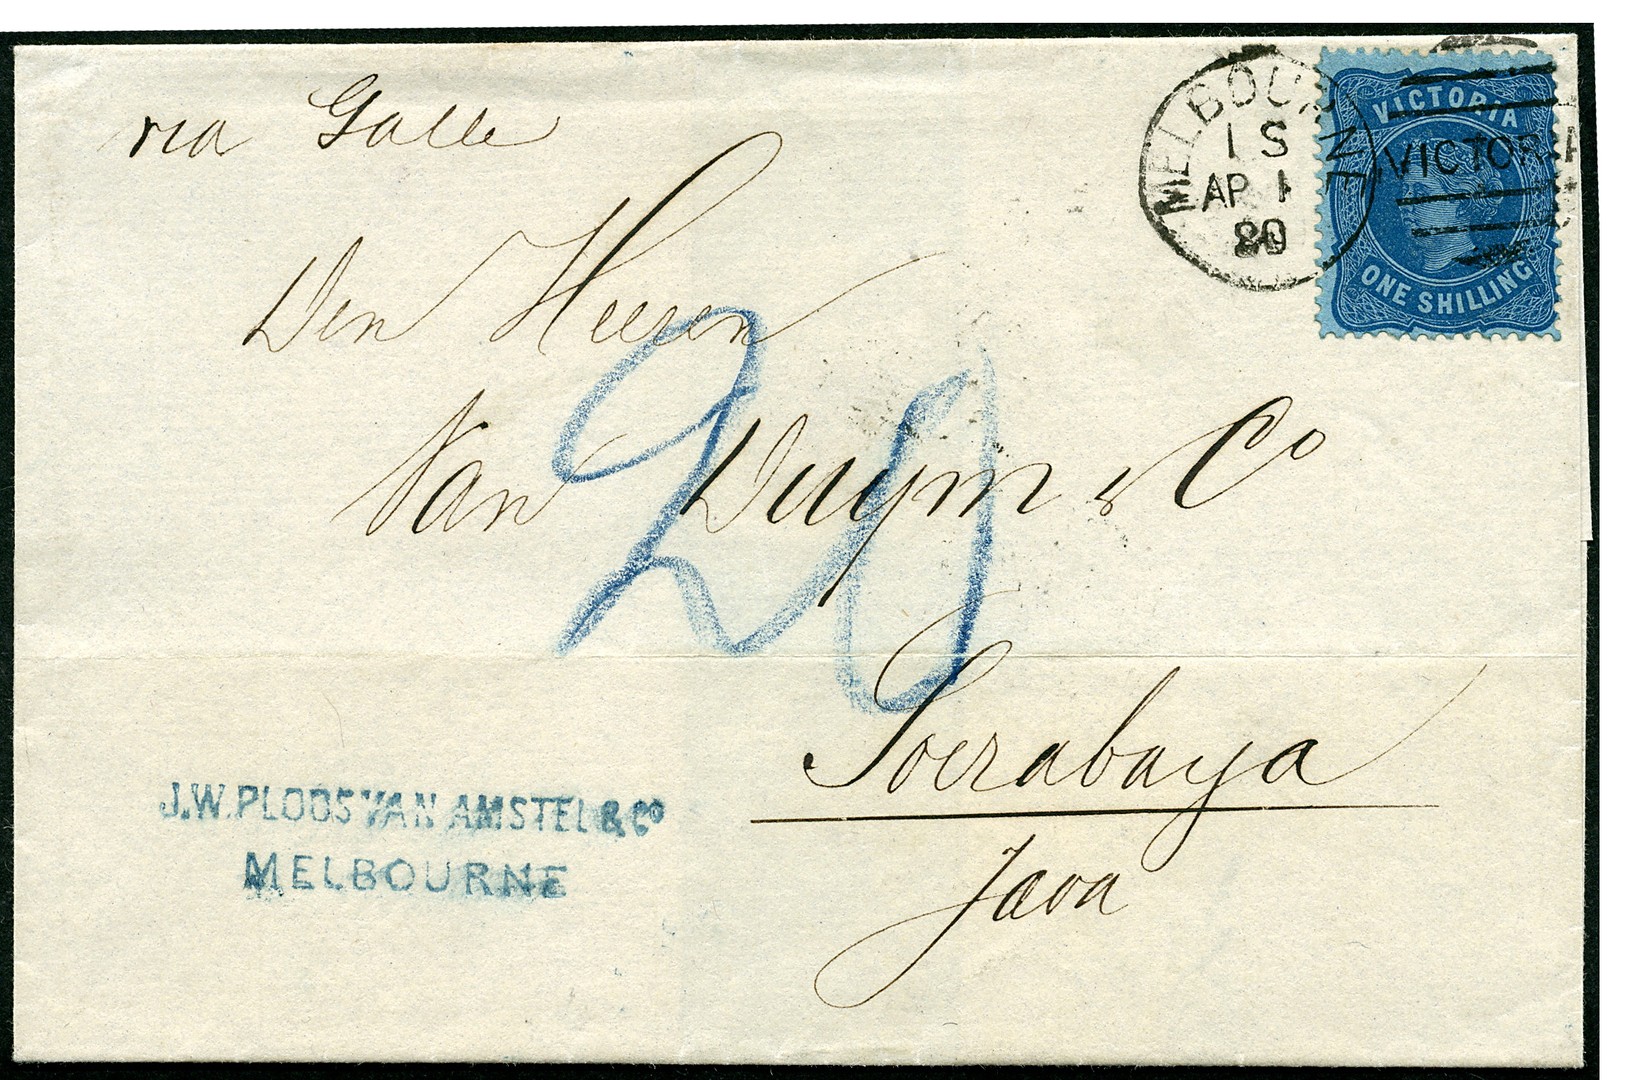 via Galle
MELBOURNE
1 S
AP 1
80
VICTORIA
VICTORIA
ONE SHILLING
Den Heeren
Van Duym & Co
20
Soerabaya
Java
J.W. PLOOS VAN AMSTEL & Co
MELBOURNE